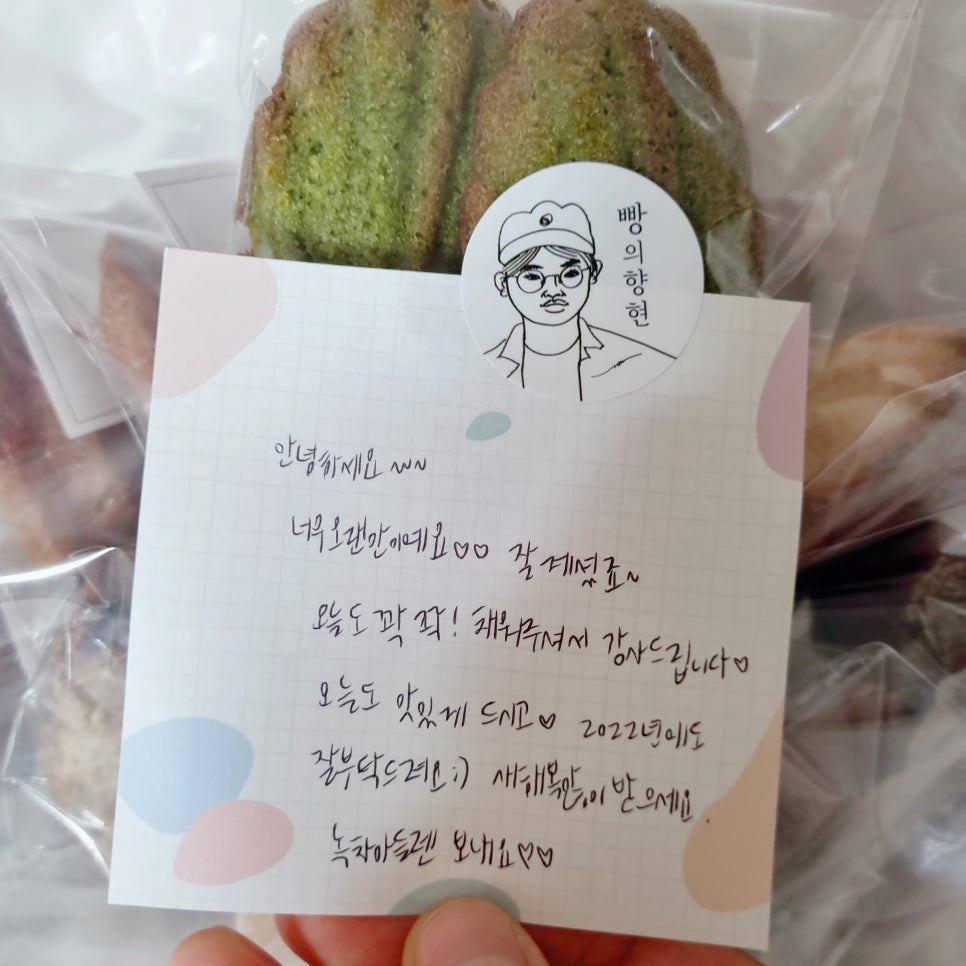 빵의향현
안녕하세요~~
너무오랜만이예요♡♡ 잘계셨죠~
오늘도 꽉꽉! 채워주셔서 감사드립니다♡
오늘도 맛있게 드시고♡ 2022년에도
잘부탁드려요:) 새해복많이 받으세요.
녹차마들렌 보내요♡♡